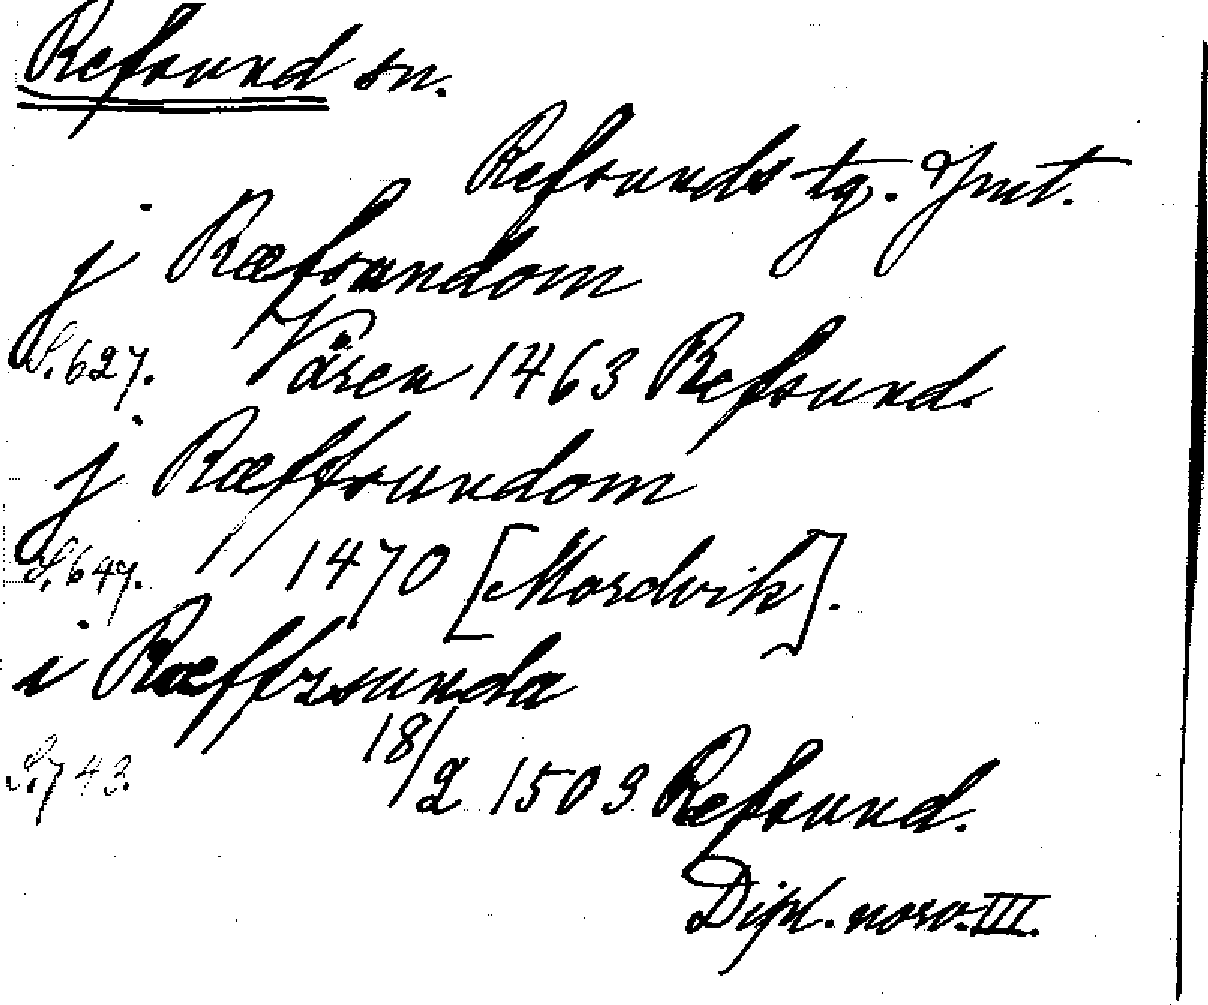 Refsund sn.
Refsunds tg. Jmt.
j Ræfsundom
S. 627. Våren 1463 Refsund.
j Ræffsundom
S. 647. 1470 [Mordvik].
i Ræffzsunda
S. 743. 18/2 1503 Refsund.
Dipl. norv. III.